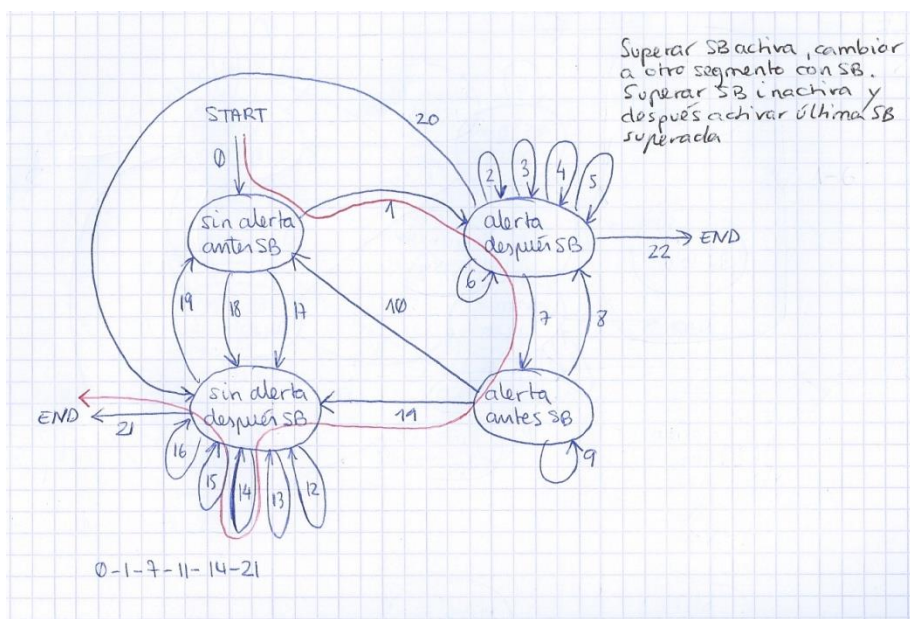 Superar SB activa, cambiar
a otro segmento con SB.
Superar SB inactiva y
después activar última SB
superada
START
20
0
1
2
3
4
5
sin alerta
antes SB
alerta
después SB
22
END
6
19
18
17
10
7
8
sin alerta
después SB
alerta
antes SB
END
21
11
9
16
15
14
13
12
0-1-7-11-14-21